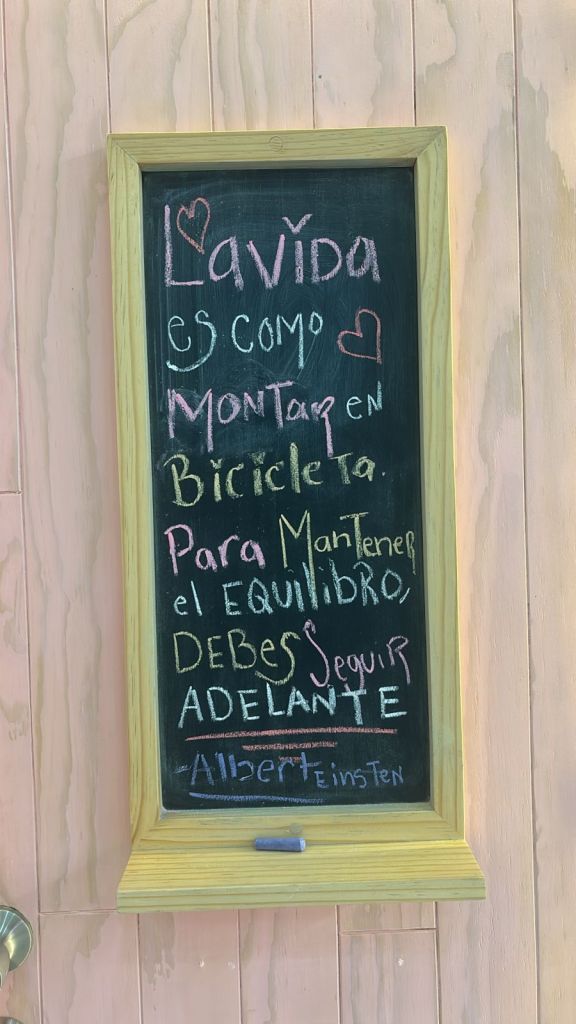 La vida
es como
Montar en
Bicicleta.
Para Mantener
el EQUILIBRO,
DEBES Seguir
ADELANTE
-Albert EinsTEN